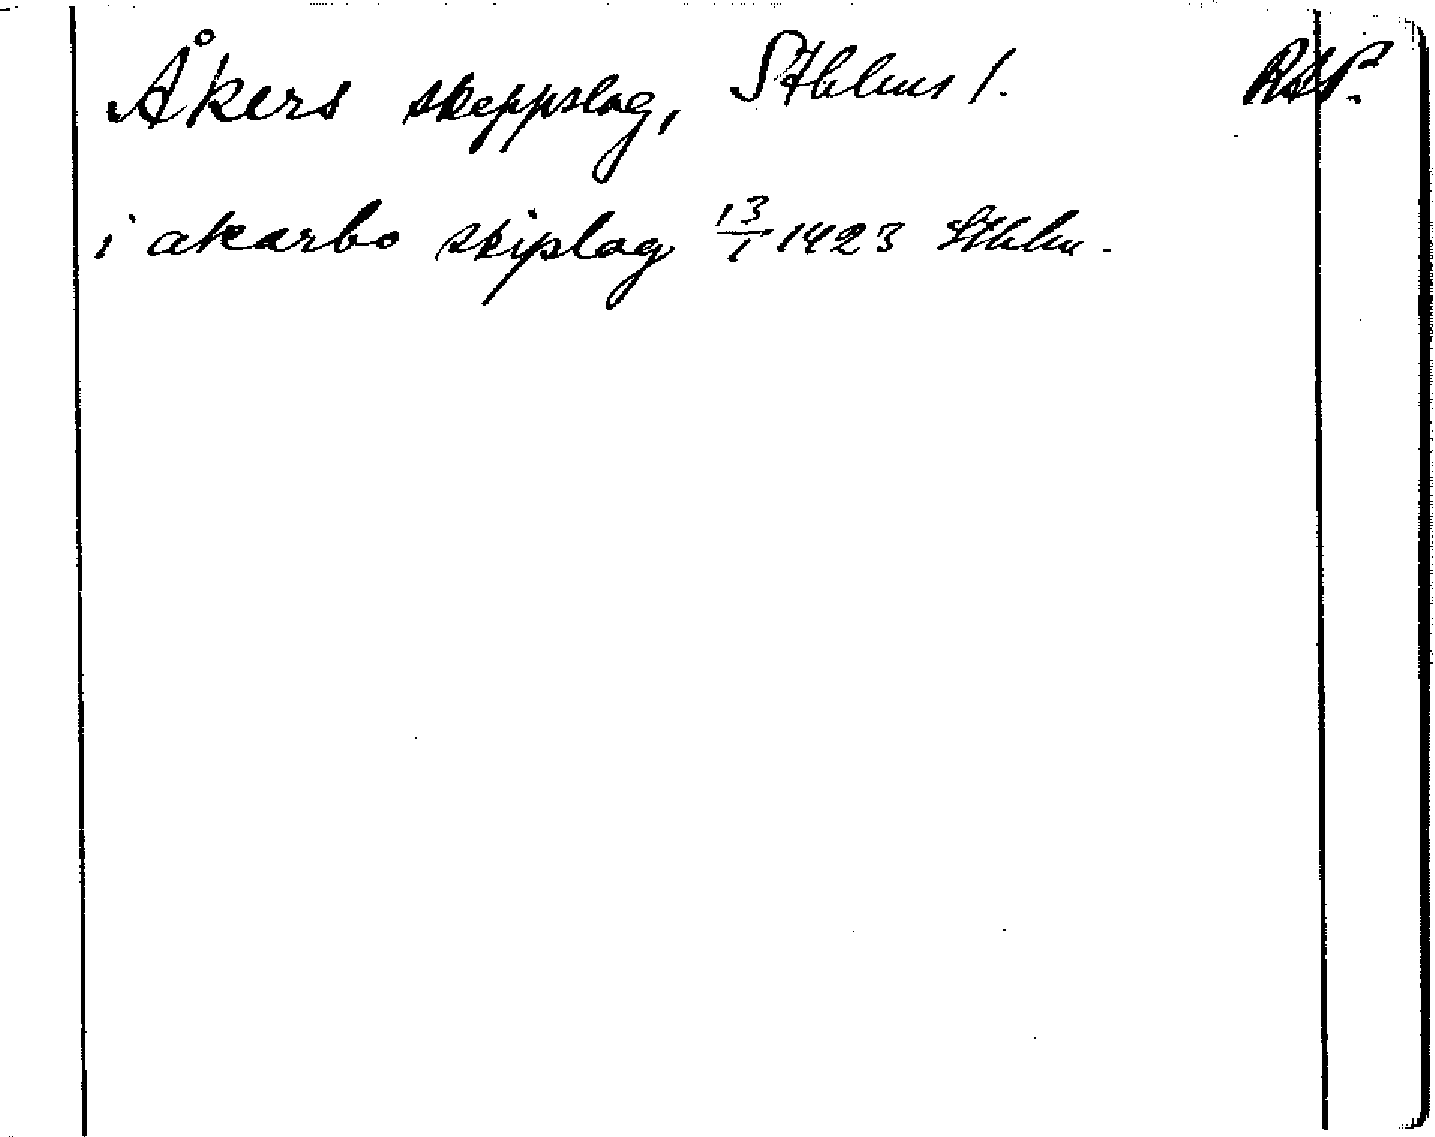 Åkers skeppslag, Sthlms l. RAP.
i akarbo skiplag 13/1 1423 Sthlm.